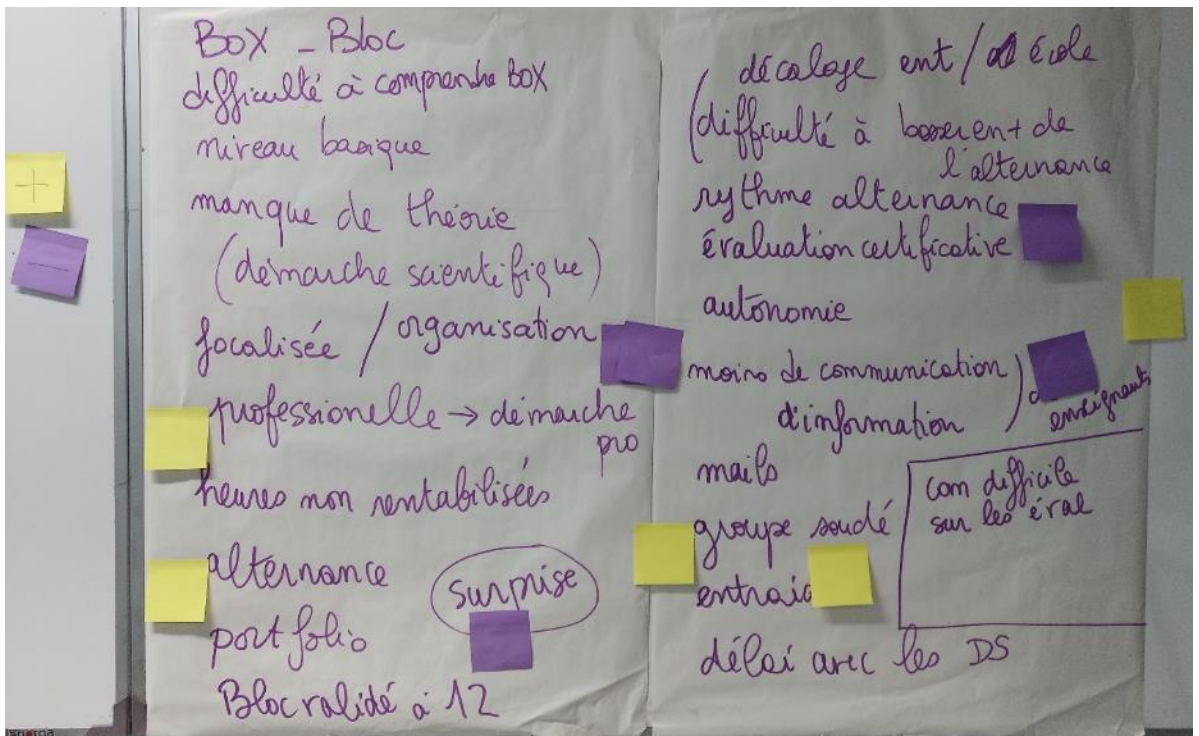 +
-
BOX - Bloc
difficulté à comprendre BOX
niveau basique
manque de théorie
(démarche scientifique)
focalisée / organisation
professionelle → démarche
pro
heures non rentabilisées
alternance
surprise
portfolio
Bloc validé à 12
décalage ent / école
(difficulté à ent de
l'alternance
rythme alternance
évaluation certificative
autonomie
moins de communication )
d'information
enseignants
mails
com difficile
sur les éval
groupe soudé
délai avec les DS